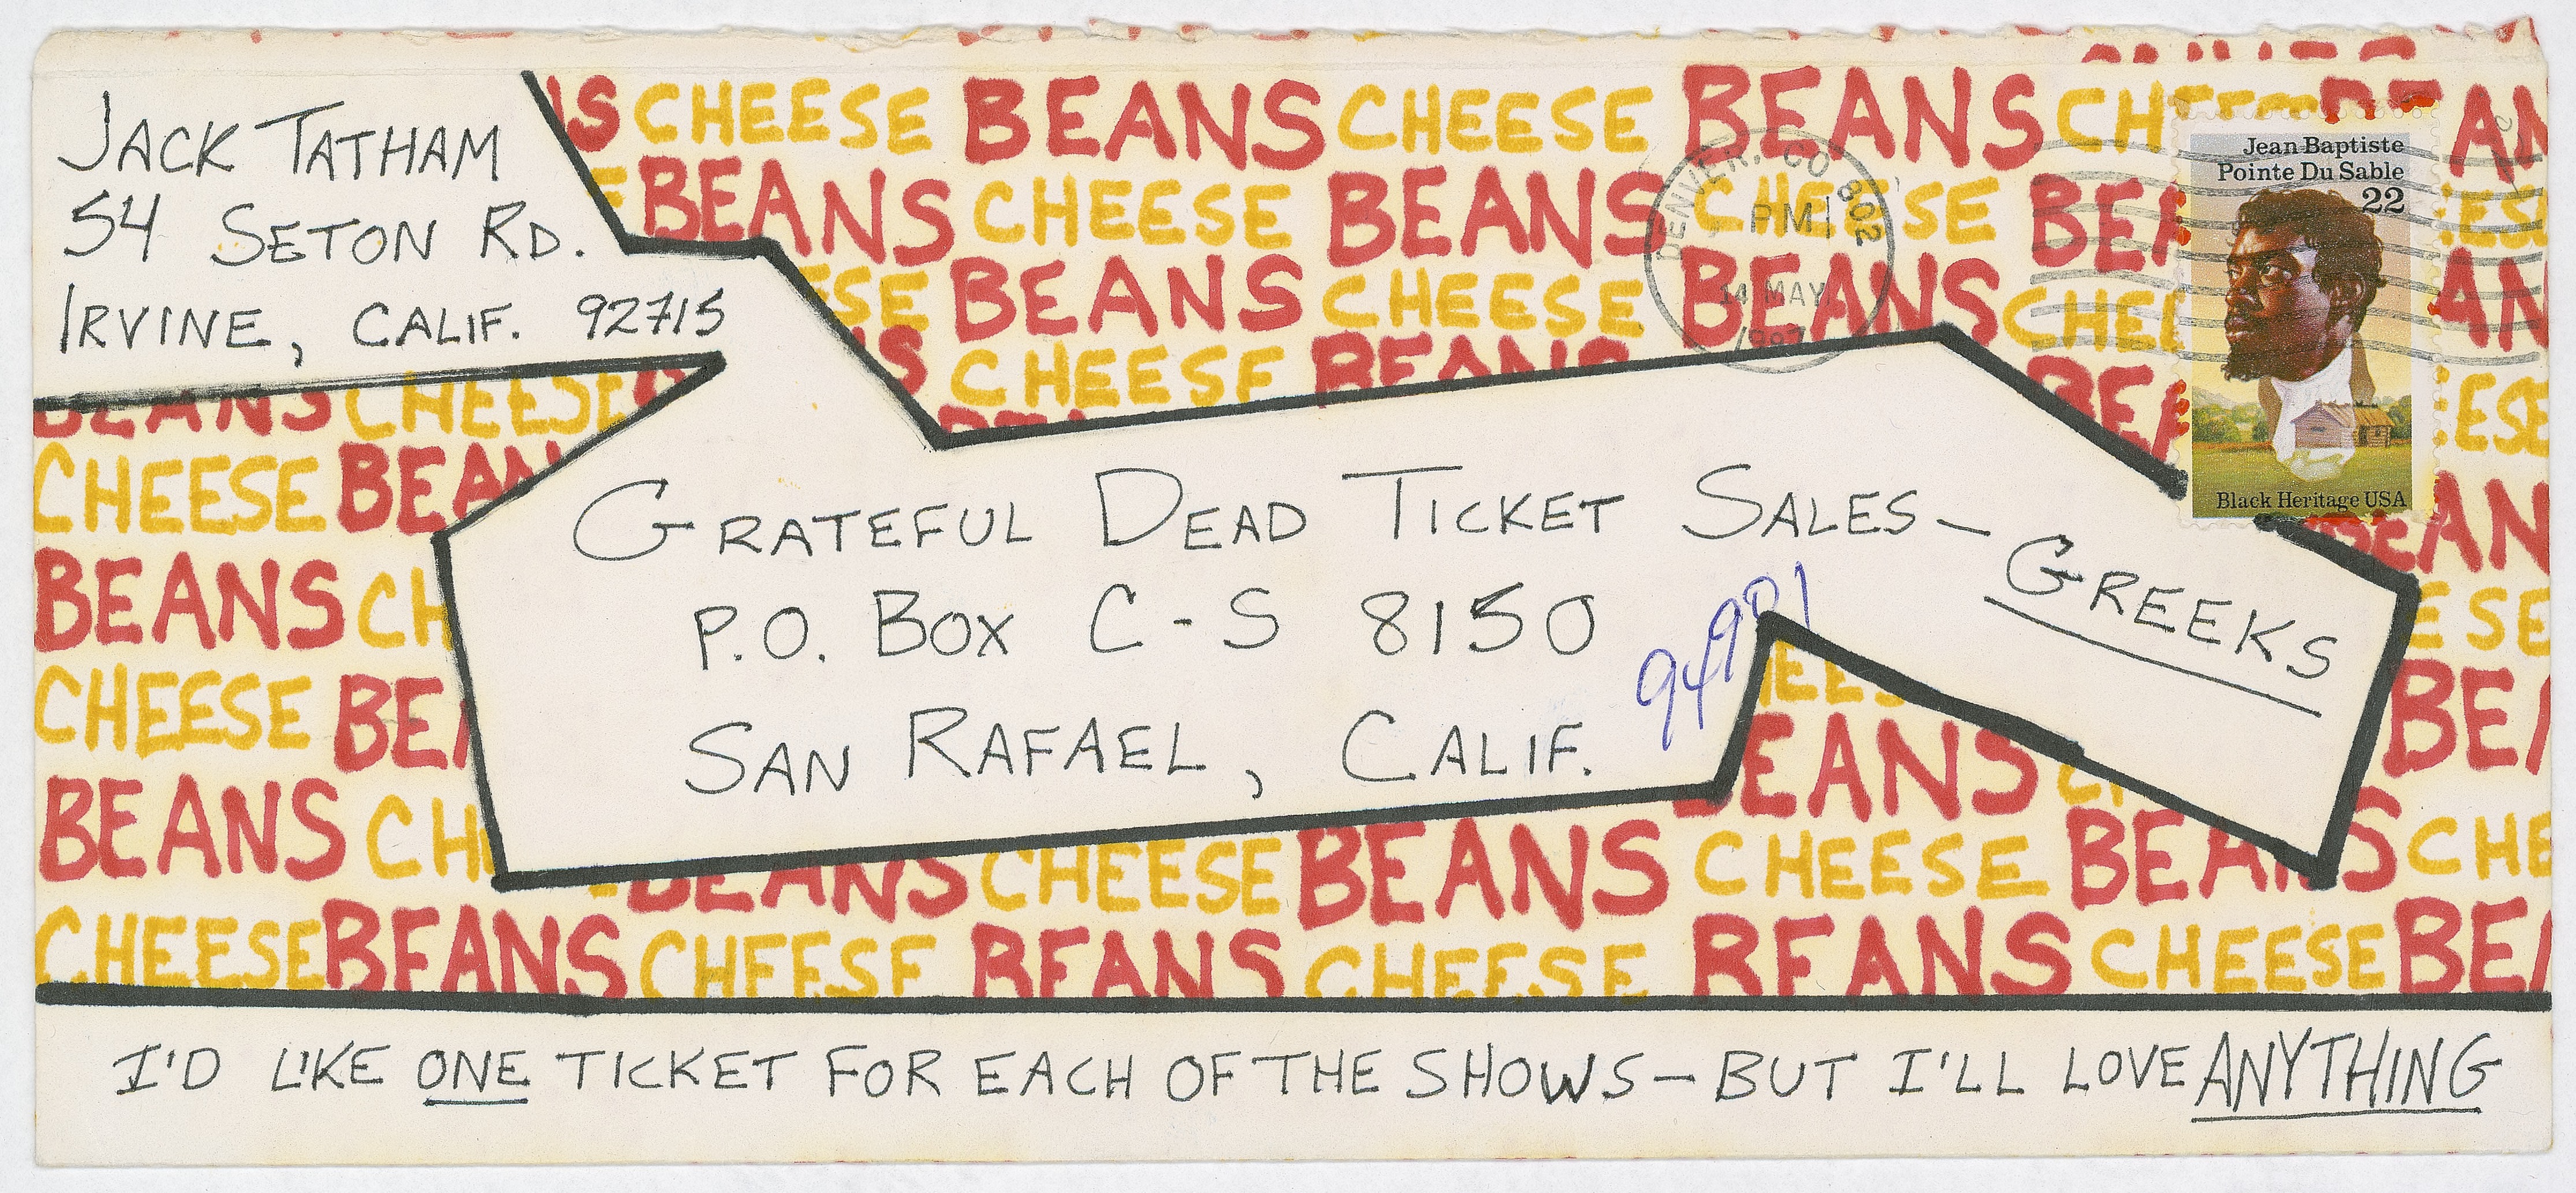 JACK TATHAM
54 SETON RD.
IRVINE, CALIF. 92715
CHEESE BEANS CHEESE BEANS
BEANS CHEESE BEANS CHEESE
BEANS CHEESE BEANS
CHEESE BEANS
DENVER, CO 802
PM
14 MAY
Jean Baptiste
Pointe Du Sable
22
Black Heritage USA
BEANS CHEESE
CHEESE
BEANS
CHEESE
BEANS
GRATEFUL DEAD TICKET SALES— GREEKS
P.O. BOX C-S 8150
SAN RAFAEL, CALIF. 94901
BEANS
CHEESE BEANS
BEANS CHEESE BEANS
CHEESE BEANS CHEESE BEANS CHEESE BEANS CHEESE
I'D LIKE ONE TICKET FOR EACH OF THE SHOWS—BUT I'LL LOVE ANYTHING